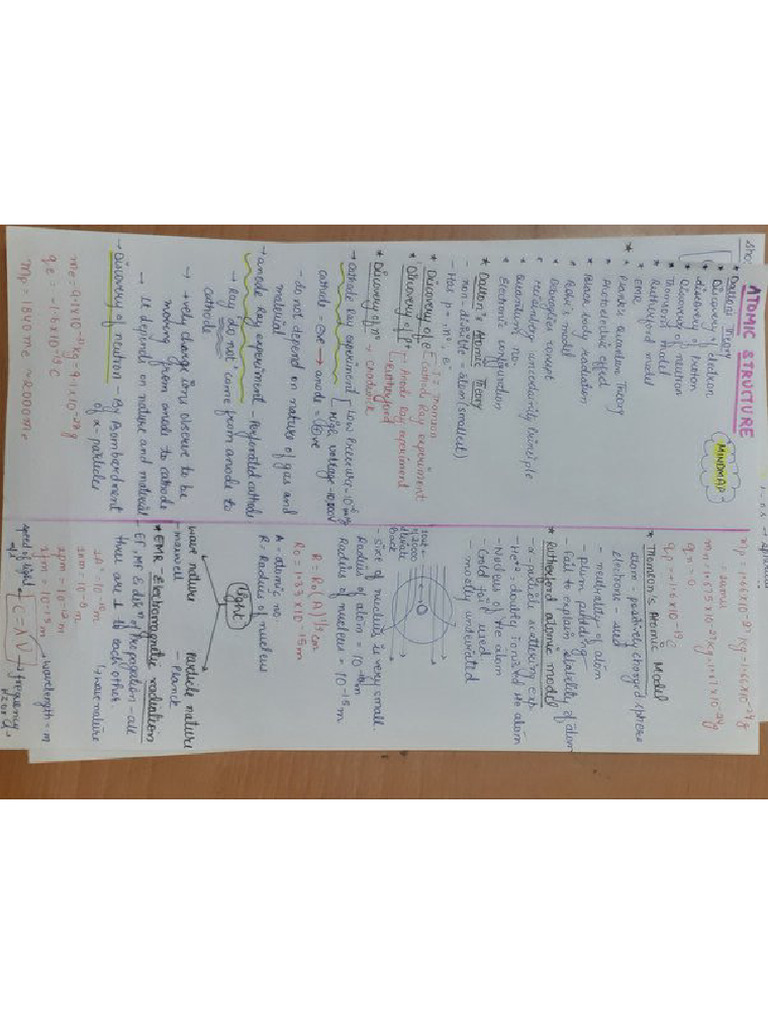 ATOMIC STRUCTURE
MINDMAP
* Dalton's Theory
* Discovery of electron
* discovery of proton
* Discovery of neutron
* Thomson's model
* Rutherford model
* EMR
* Planck's Quantum Theory
* Photoelectric effect
* Black body radiation
* Bohr's model
* Debroglie's concept
* Heisenberg uncertainity principle
* Quantum no.
* Electronic configuration
* Dalton's Atomic Theory
- non-divisible = atom (smallest)
- Has p=n°, e⁻
* Discovery of e [J.J Thomson
Cathode Ray experiment:
* Discovery of P⁺ → Anode Ray experiment
Rutherford
* Discovery of n° → Chadwick
→ cathode Ray experiment [low pressure =
High voltage =
cathode = -ve → anode = +ve
- do not depend on nature of gas and
material
→ anode Ray experiment - Perforated cathode
→ Ray do not come from anode to
cathode
→ +vely charge ions observe to be
moving from anode to cathode
→ It depends on nature and material
→ Discovery of neutron - By Bombardment
of α-particles
qe = -1.6 x 10⁻¹⁹ C
mp = 1840 me ≈ 2000 me
qn = 0
* Thomson's Atomic Model
atom - positively charged sphere
electrons
- neutrality of atom
- plum pudding
- fail to explain stability of atom
* Rutherford atomic model
α-particle scattering exp.
- He⁺² = doubly ionized He atom
- Nucleus of He atom
- Gold foil used
- mostly undeviated
back
- size of nucleus is very small.
Radius of nucleus = 10⁻¹⁵ m
R = R₀ (A)^1/3 cm
A = atomic no.
R = Radius of nucleus
light
wave nature
- maxwell
Particle nature
- Planck
* EMR - Electromagnetic radiation
→ wave nature
- EF, MF & dirⁿ of Propagation - all
three are ⊥ to each other
1pm = 10⁻¹² m
1fm = 10⁻¹⁵ m
speed of light
C = λν
→ wavelength = m
→ frequency